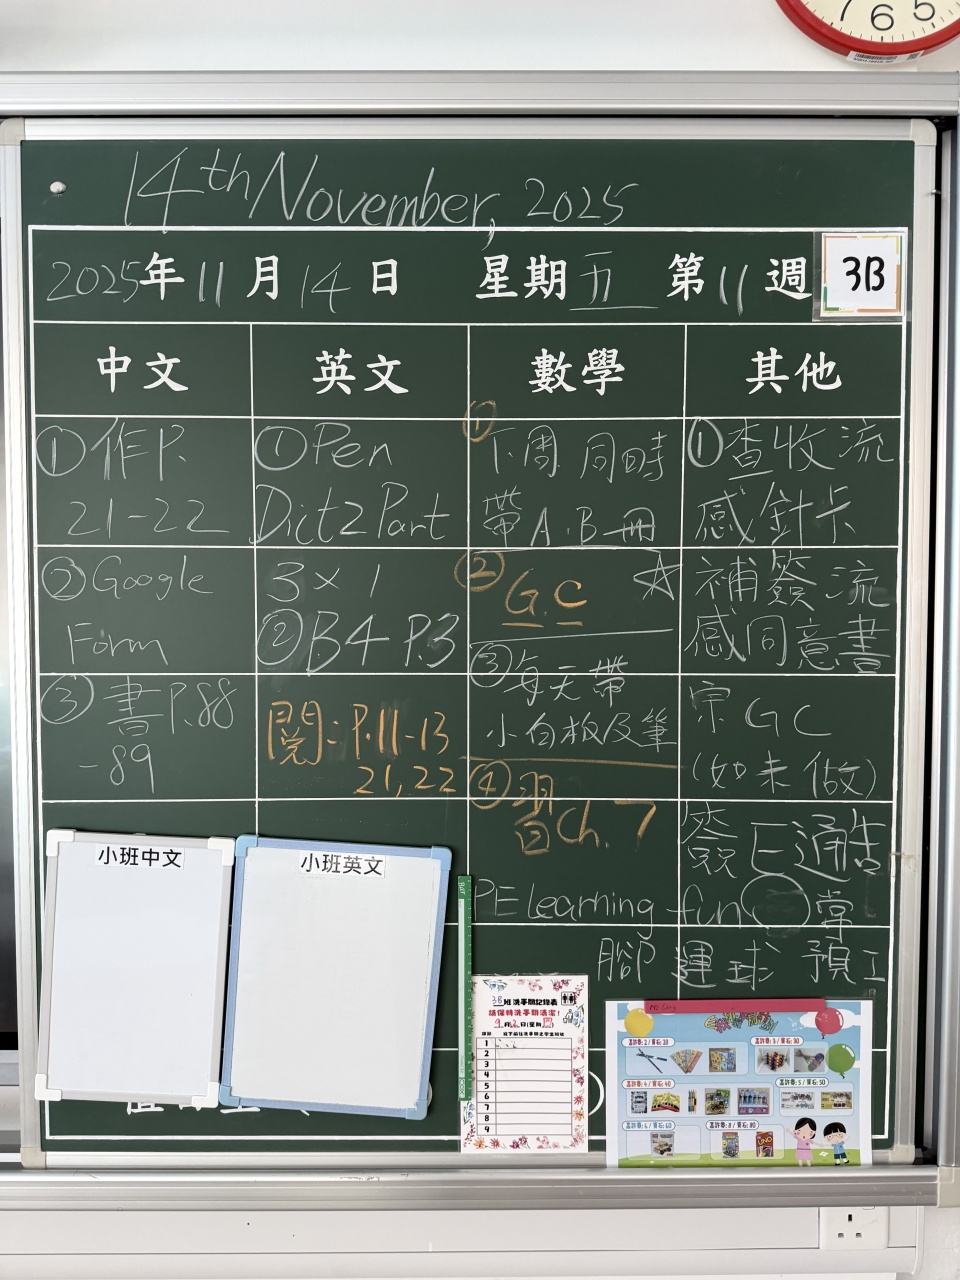 7 6 5
14th November, 2025
2025年11月14日 星期五 第11週 3B
中文 英文 數學 其他
①作P.
21-22
②Google
Form
③書P.88
-89
①Pen
Dict2 Part
3×1
②B4 P.3
閱:P.11-13
21,22
①下周同時
帶A.B冊
②G.C ☆
③每天帶
小白板及筆
④習Ch.7
①查收流
感針卡
補簽流
感同意書
完GC
(如未做)
簽E通告
PE Learning fun 掌
腳運球預工
小班中文
小班英文
3B班洗手間記錄表
請保持洗手間清潔!
1
2
3
4
5
6
7
8
9